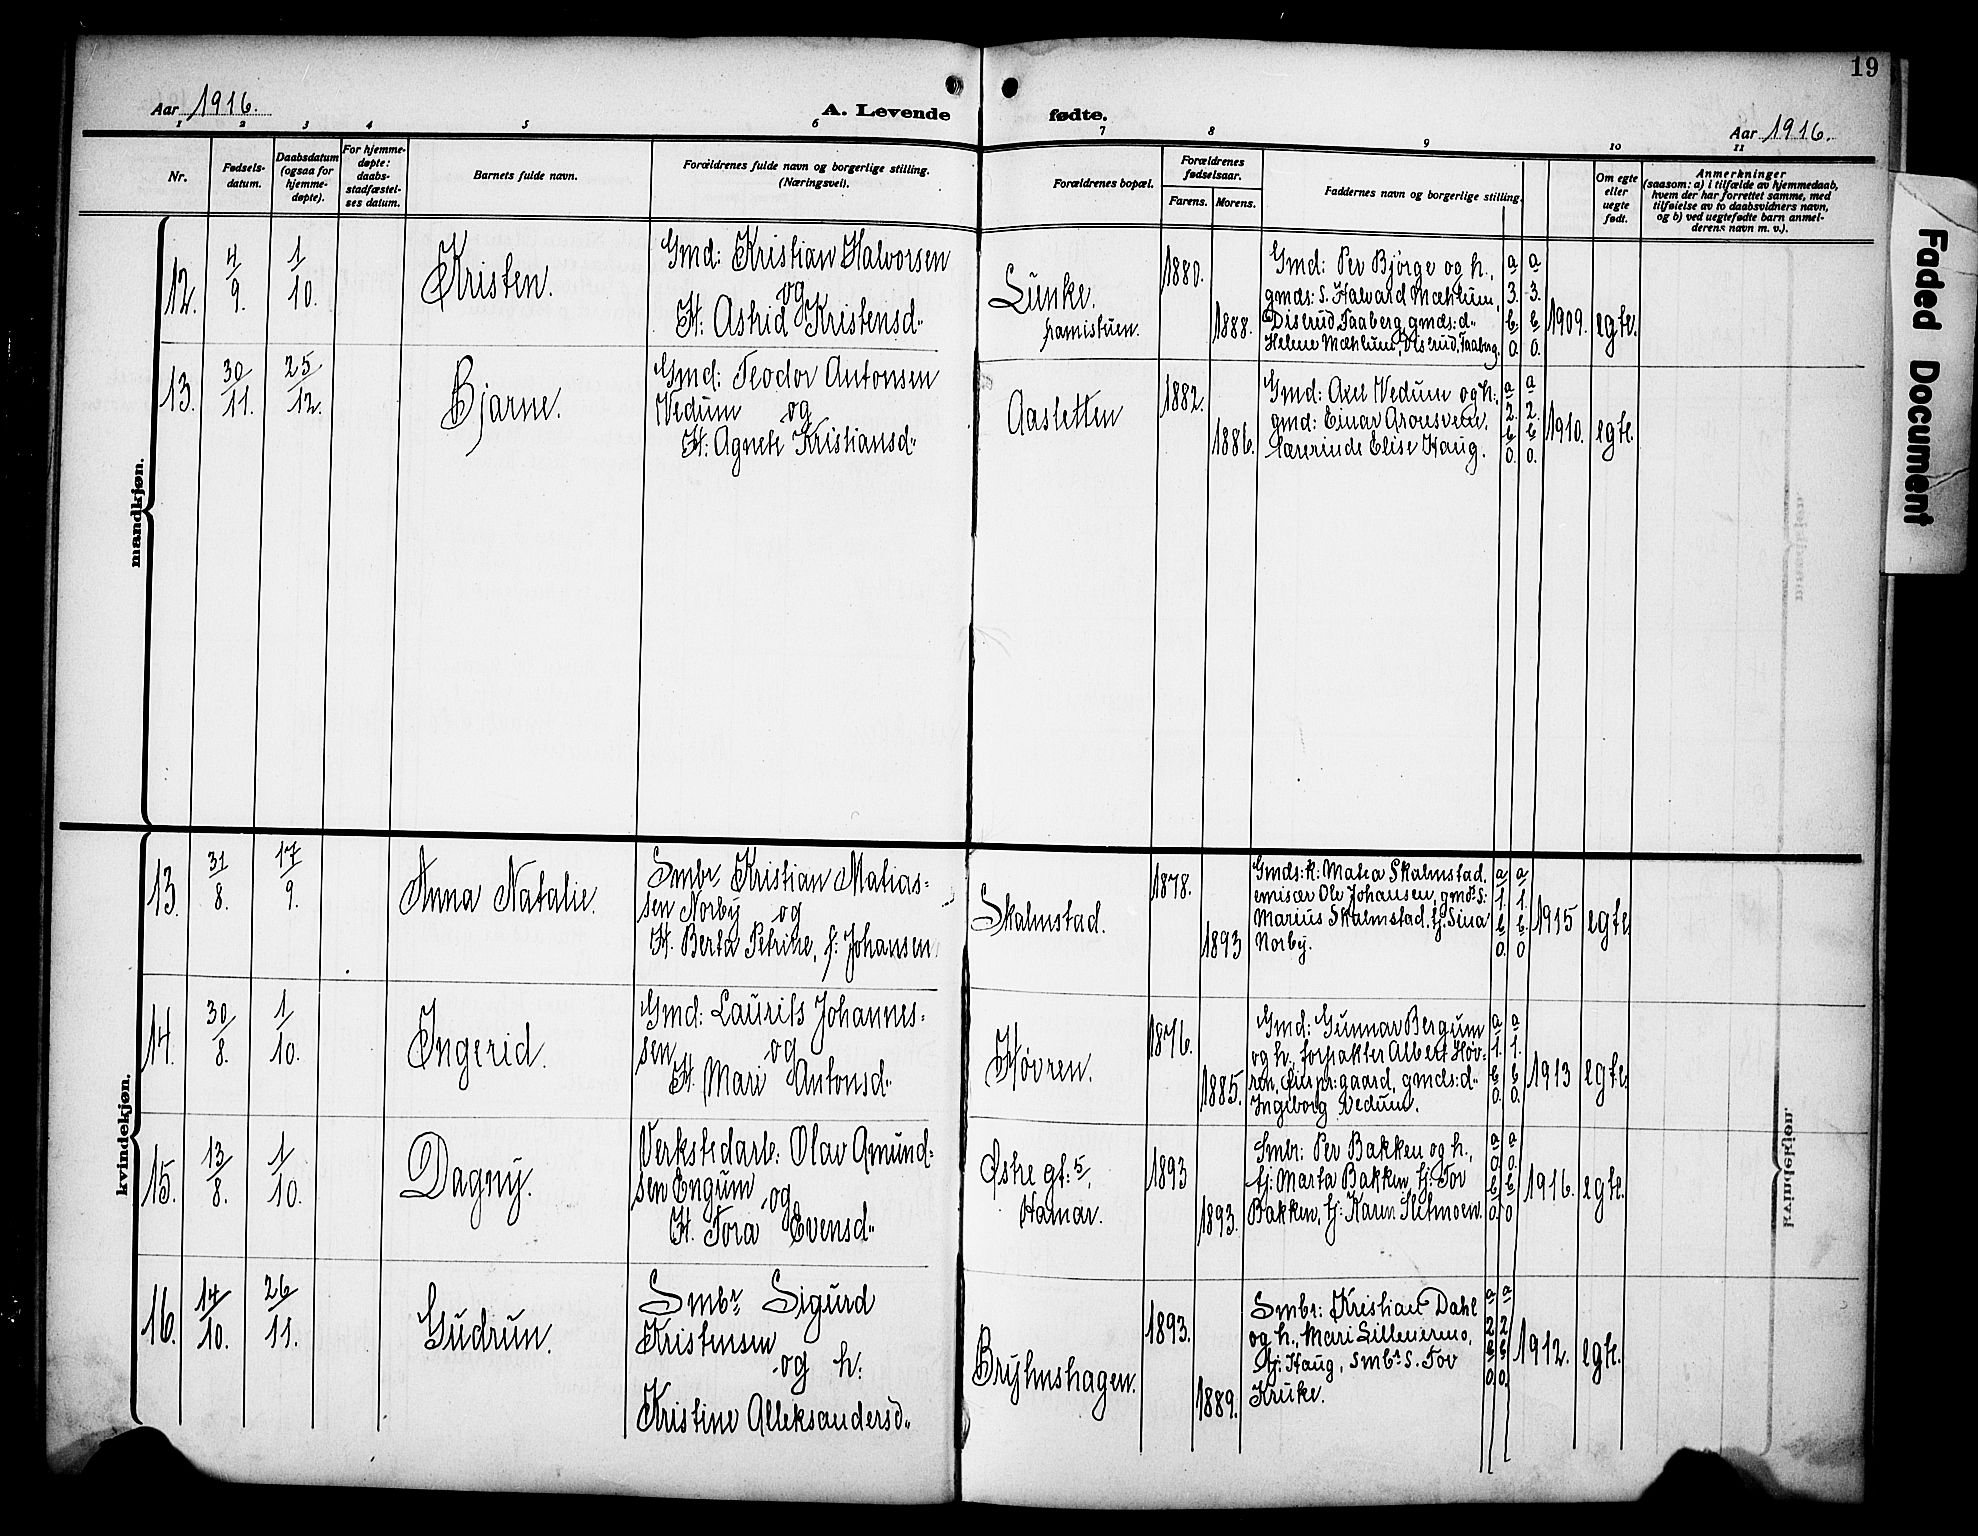 19
Aar 1916.
A. Levende fødte.
Aar 1916.
1 2 3 4 5 6 7 8 9 10 11
Nr.
Fødsels-
datum.
Daabsdatum
(ogsaa for
hjemme-
døpte).
For hjemme-
døpte:
daabs-
stadfæstel-
ses datum.
Barnets fulde navn.
Forældrenes fulde navn og borgerlige stilling.
(Næringsvei).
Forældrenes bopæl.
Forældrenes
fødselsaar.
Farens. Morens.
Faddernes navn og borgerlige stilling.
Om egte
eller
uegte
født.
Anmerkninger
(saasom: a) i tilfælde av hjemmedaab,
hvem der har forrettet samme, med
tilføielse av to daabsvidners navn,
og b) ved uegtefødte barn anmel-
derens navn m. v.).
mandkjøn.
12. 4/9. 1/10. Kristen.
Gmd: Kristian Halvorsen
og
H. Astrid Kristensd„
Lunke.
framistuen.
1880.
1888.
Gmd: Per Bjørge og h.,
gmds: s. Halvard Mæhlum,
Disrud, Faaberg, gmds: d„
Helene Mæhlum, Disrud, Faaberg.
a a
3. 3.
b. b.
0. 0.
1909. egte.
13. 30/11. 25/12. Bjarne.
Gmd: Teodor Antonsen
Vedum og
H. Agnete Kristiansd„
Aasletten
1882.
1886.
Gmd: Axel Vedum og h.,
gmd: Einar Gronsveen,
lærerinde Elise Haug.
a a
2. 2.
b. b.
0. 0.
1910. egte.
kvindekjøn.
13. 31/8. 17/9. Anna Natalie.
Smbr. Kristian Matias-
sen Norby og
H. Berta Petrine, f: Johansen.
Skalmstad.
1878.
1893
Gmds: k: Matea Skalmstad.
emisær Ole Johansen, gmds s:
Marius Skalmstad. tj. Sina
Norby.
a a
1. 1.
b. b.
0. 0
1915 egte
14. 30/8. 1/10. Ingerid.
Gmd: Laurits Johannes-
sen og
H. Mari Antonsd„
Høvren.
1876.
1885.
Gmd: Gunnar Bergum
og h., forpakter Albert Høv-
ren, gaard, gmds: d„
Ingeborg Vedum.
a a
1. 1.
b. b.
0. 0.
1913 egte
15. 13/8. 1/10. Dagny.
Verkstedarb: Olav Amund-
sen Engum og
H. Tora Evensd„
Østre gt: 5,
Hamar.
1893
1893.
Smbr: Per Bakken og h.,
tj: Marta Bakken, tj: Tov
Bakken, tj: Karen Sletmoen.
a a
0. 0.
b. b.
0. 0
1916. egte.
16. 14/10. 26/11. Gudrun.
Smbr Sigurd
Kristensen
og h:
Kristine Alleksandersd„
Bryhnshagen.
1893.
1889.
Smbr: Kristian Dahl
og h., Mari Lilleeremo,
tj: Haug, smbr s. Tov
Kruke.
a a
2 2
b. b.
0. 0.
1912. egte.
Faded Document